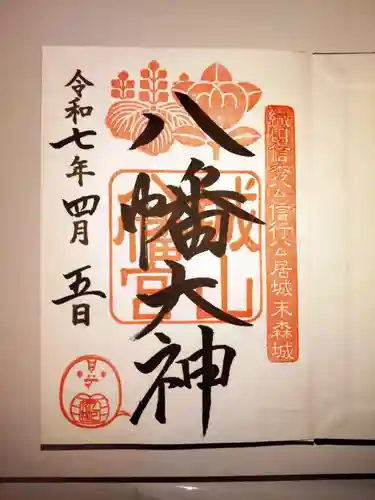 織田信秀公信行公居城末森城
八幡大神
城山八幡宮
令和七年四月五日